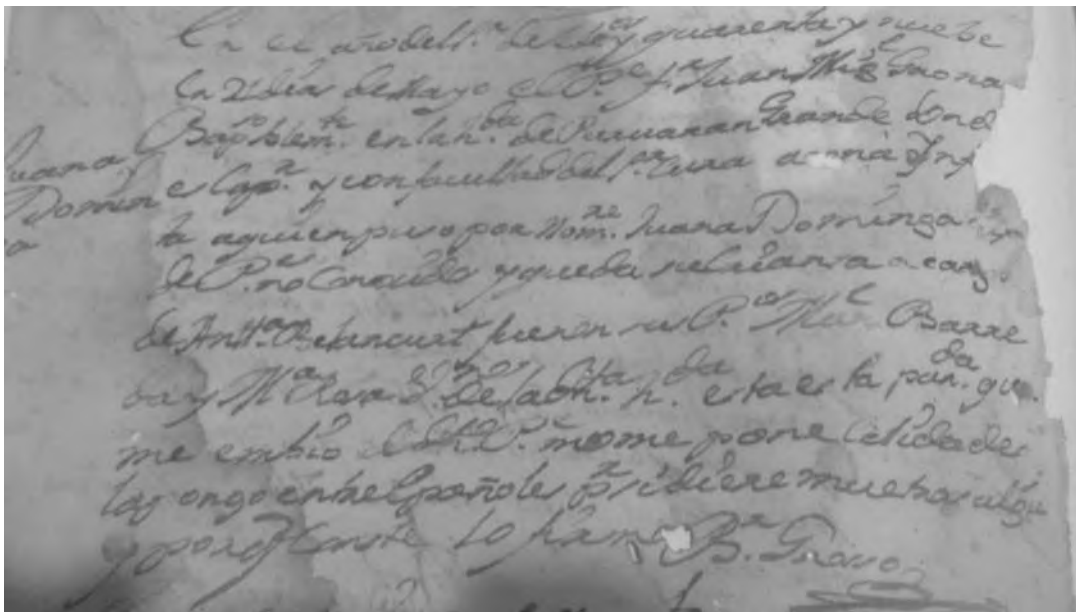 En el año del S.r de 1749 quarenta y nuebe
En 2 dias de Mayo el P.e f.r Juan Mig.l Gaona
Juana Baptisò solem.te en la h.da de Puruaran Grande dond
Domin e Cap.n y con facultad del S.or Cura a una Ynf
ga ta a quien puso por Nom.re Juana Dominga
de P.es no Conocidos y queda su Criansa a cargo
de Ant.a Betancurt fueron sus P.nos Mig.l Barre
da y M.a Rosa de la dha. h.da esta es la par.da que
me embio el dho P.e no me pone Calidades
la pongo en los Españoles p.r si diere muestras algu
y porq. Conste lo firmo B.r Gravo